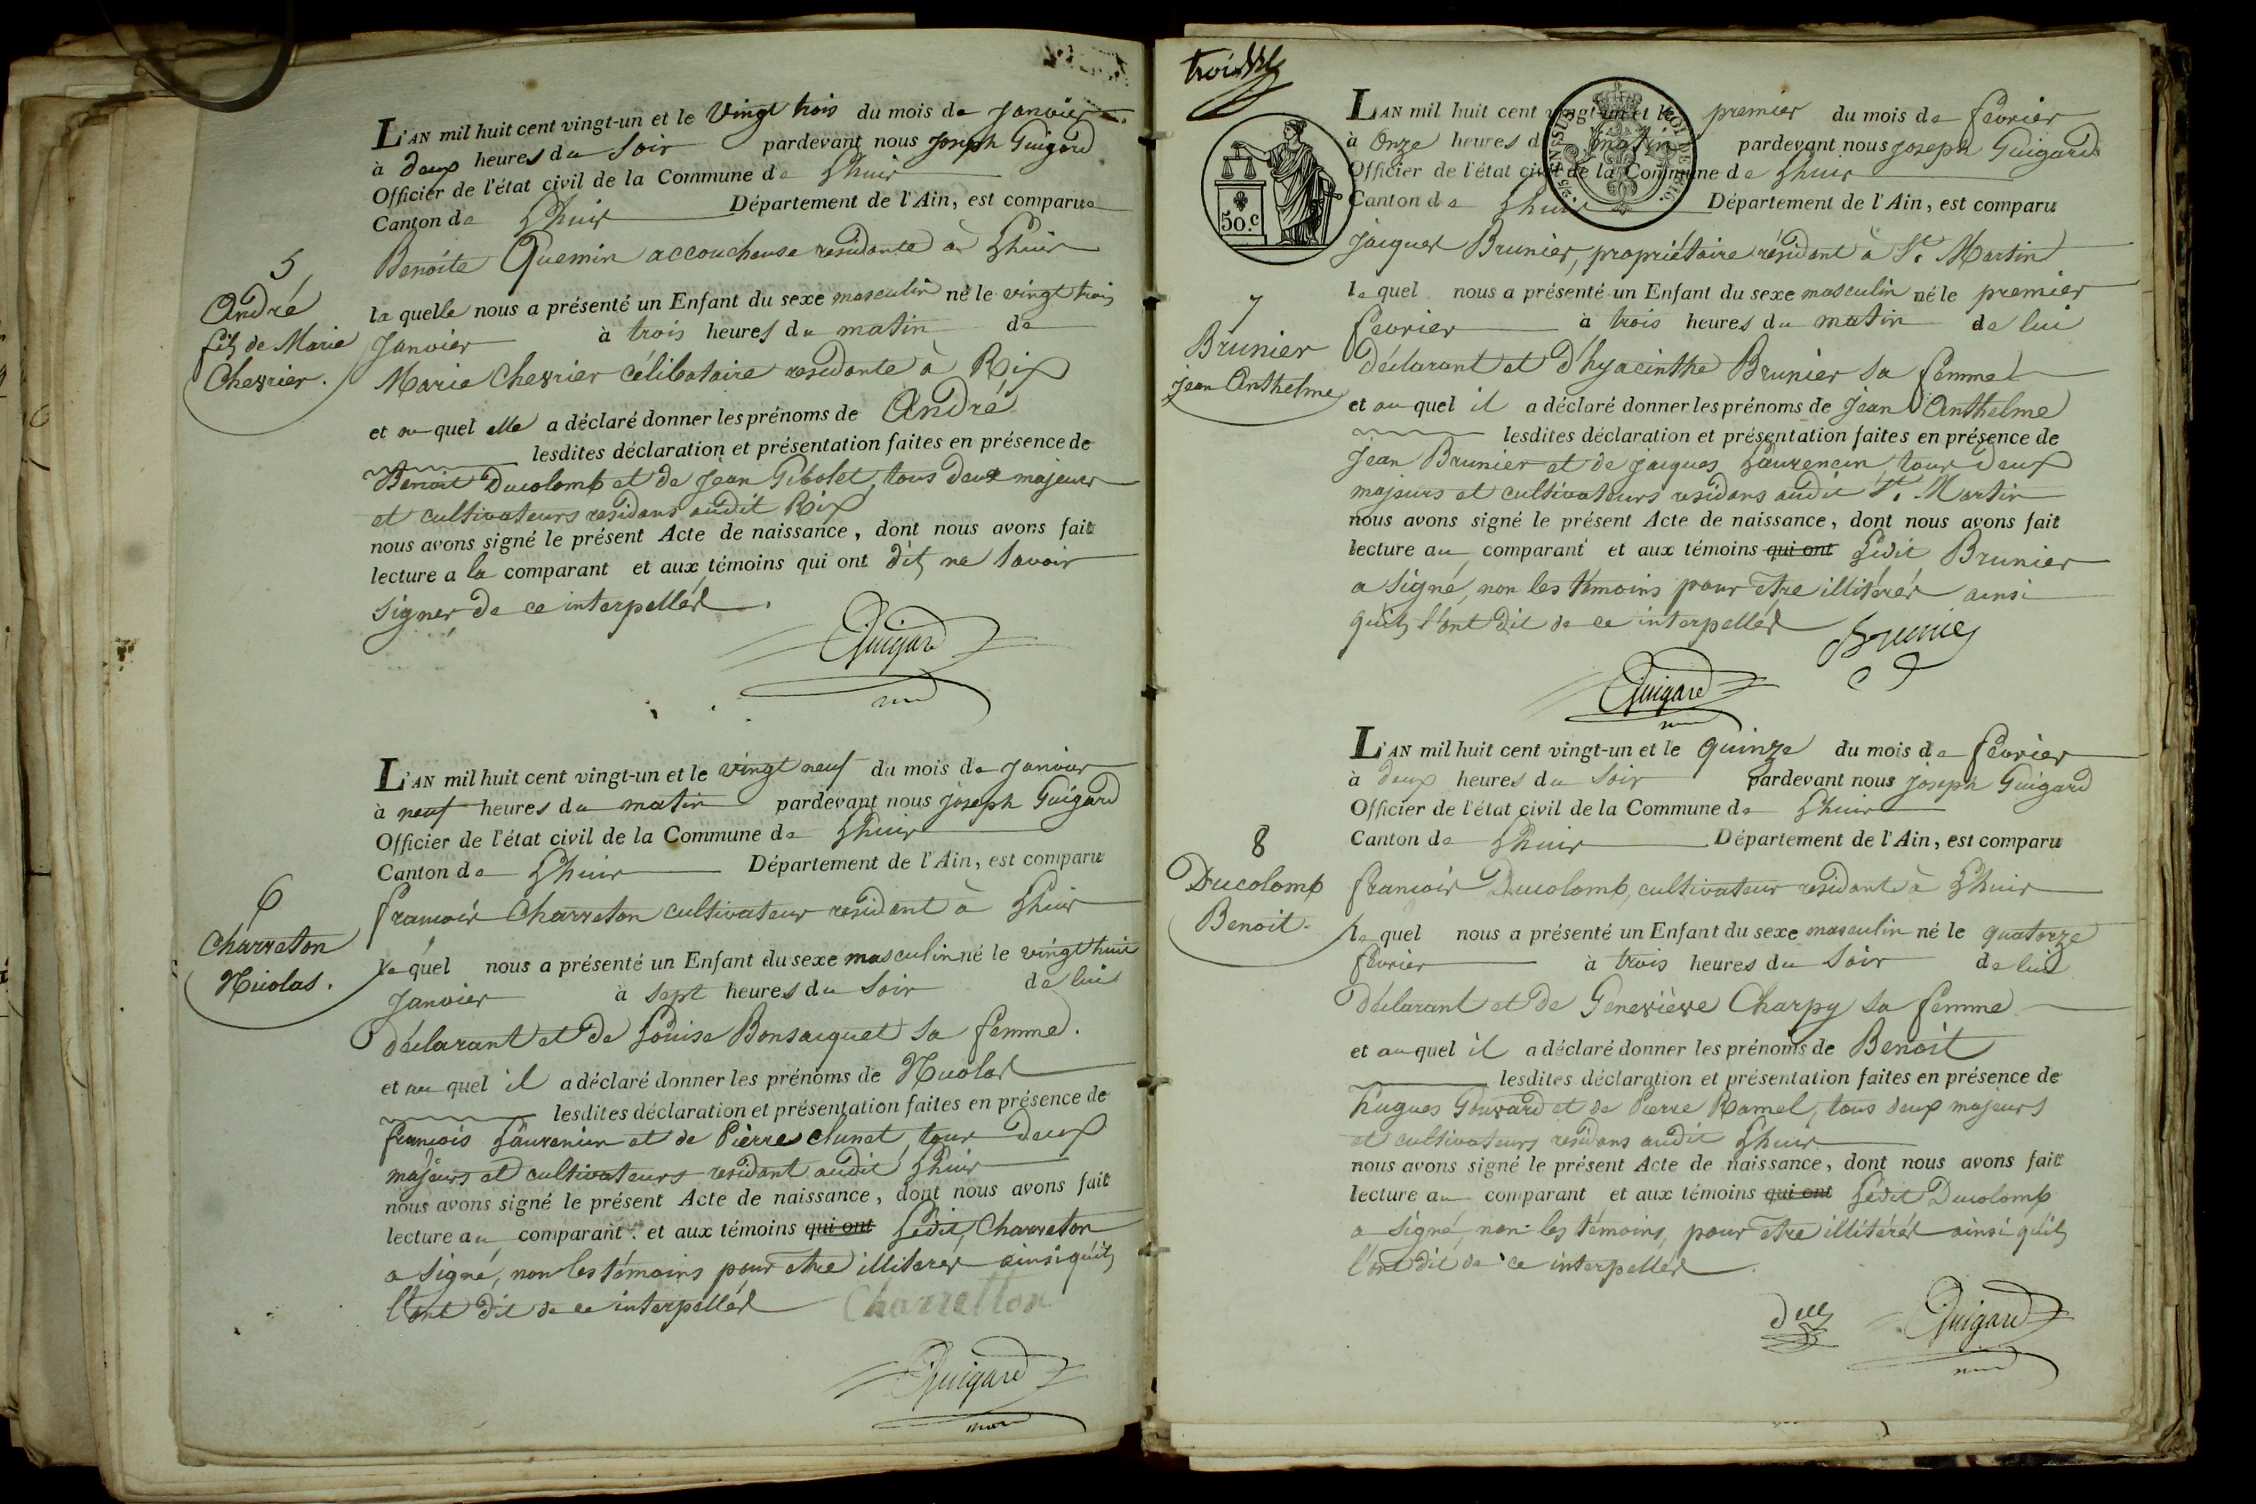 L'AN mil huit cent vingt-un et le Vingt trois du mois de Janvier
à deux heures du Soir pardevant nous Joseph Guigard
Officier de l'état civil de la Commune de Lhuis
Canton de Lhuis Département de l'Ain, est comparue
Benoite Quemin accoucheuse residante à Lhuis
5
André
fils de Marie
Chevrier.
la quelle nous a présenté un Enfant du sexe masculin né le vingt trois
Janvier à trois heures du matin de
Marie Chevrier célibataire residante à Rix
et au quel elle a déclaré donner les prénoms de André
lesdites déclaration et présentation faites en présence de
Benoit Ducolomb et de Jean Gibolet, tous deux majeurs
et cultivateurs residans audit Rix
nous avons signé le présent Acte de naissance, dont nous avons fait
lecture a la comparant et aux témoins qui ont dit ne Savoir
signer de ce interpellés.
Guigard
L'AN mil huit cent vingt-un et le vingt neuf du mois de Janvier
à neuf heures du matin pardevant nous joseph Guigard
Officier de l'état civil de la Commune de Lhuis
Canton de Lhuis Département de l'Ain, est comparu
françois Charreton cultivateur resident à Lhuis
6
Charreton
Nicolas.
le quel nous a présenté un Enfant du sexe masculin né le vingt huit
Janvier à sept heures du Soir de lui
déclarant et de Louise Bonsacquet sa femme.
et au quel il a déclaré donner les prénoms de Nicolas
lesdites déclaration et présentation faites en présence de
françois Laurencin et de Pierre Chunet, tous deux
majeurs et cultivateurs residant audit Lhuis
nous avons signé le présent Acte de naissance, dont nous avons fait
lecture au comparant et aux témoins qui ont Ledit Charreton
a signé, non les témoins pour etre illiterés ainsi qu'ils
l'ont dit de ce interpellés
Charretton
Guigard
50.c
L'AN mil huit cent vingt-un et le premier du mois de fevrier
à Onze heures du matin pardevant nous joseph Guigard
Officier de l'état civil de la Commune de Lhuis
Canton de Lhuis Département de l'Ain, est comparu
jacques Brunier, propriétaire résidant à St. Martin
7
Brunier
jean Anthelme
le quel nous a présenté un Enfant du sexe masculin né le premier
fevrier à trois heures du matin de lui
déclarant et d'hyacinthe Brunier sa femme
et au quel il a déclaré donner les prénoms de Jean Anthelme
lesdites déclaration et présentation faites en présence de
Jean Brunier et de jacques Laurencin, tous deux
majeurs et cultivateurs residans audit St. Martin
nous avons signé le présent Acte de naissance, dont nous avons fait
lecture au comparant et aux témoins qui ont Ledit Brunier
a signé, non les témoins pour etre illitérés ainsi
qu'ils l'ont dit de ce interpellés
Brunier
Guigard
L'AN mil huit cent vingt-un et le quinze du mois de fevrier
à deux heures du Soir pardevant nous joseph Guigard
Officier de l'état civil de la Commune de Lhuis
Canton de Lhuis Département de l'Ain, est comparu
françois Ducolomb, cultivateur residant à Lhuis
8
Ducolomb
Benoit.
le quel nous a présenté un Enfant du sexe masculin né le quatorze
fevrier à trois heures du Soir de lui
déclarant et de Geneviève Charpy sa femme
et au quel il a déclaré donner les prénoms de Benoit
lesdites déclaration et présentation faites en présence de
hugues Gouvard et de Pierre Ramel, tous deux majeurs
et cultivateurs residans audit Lhuis
nous avons signé le présent Acte de naissance, dont nous avons fait
lecture au comparant et aux témoins qui ont Ledit Ducolomb
a signé, non les témoins, pour etre illitérés ainsi qu'ils
l'ont dit de ce interpellés.
Guigard